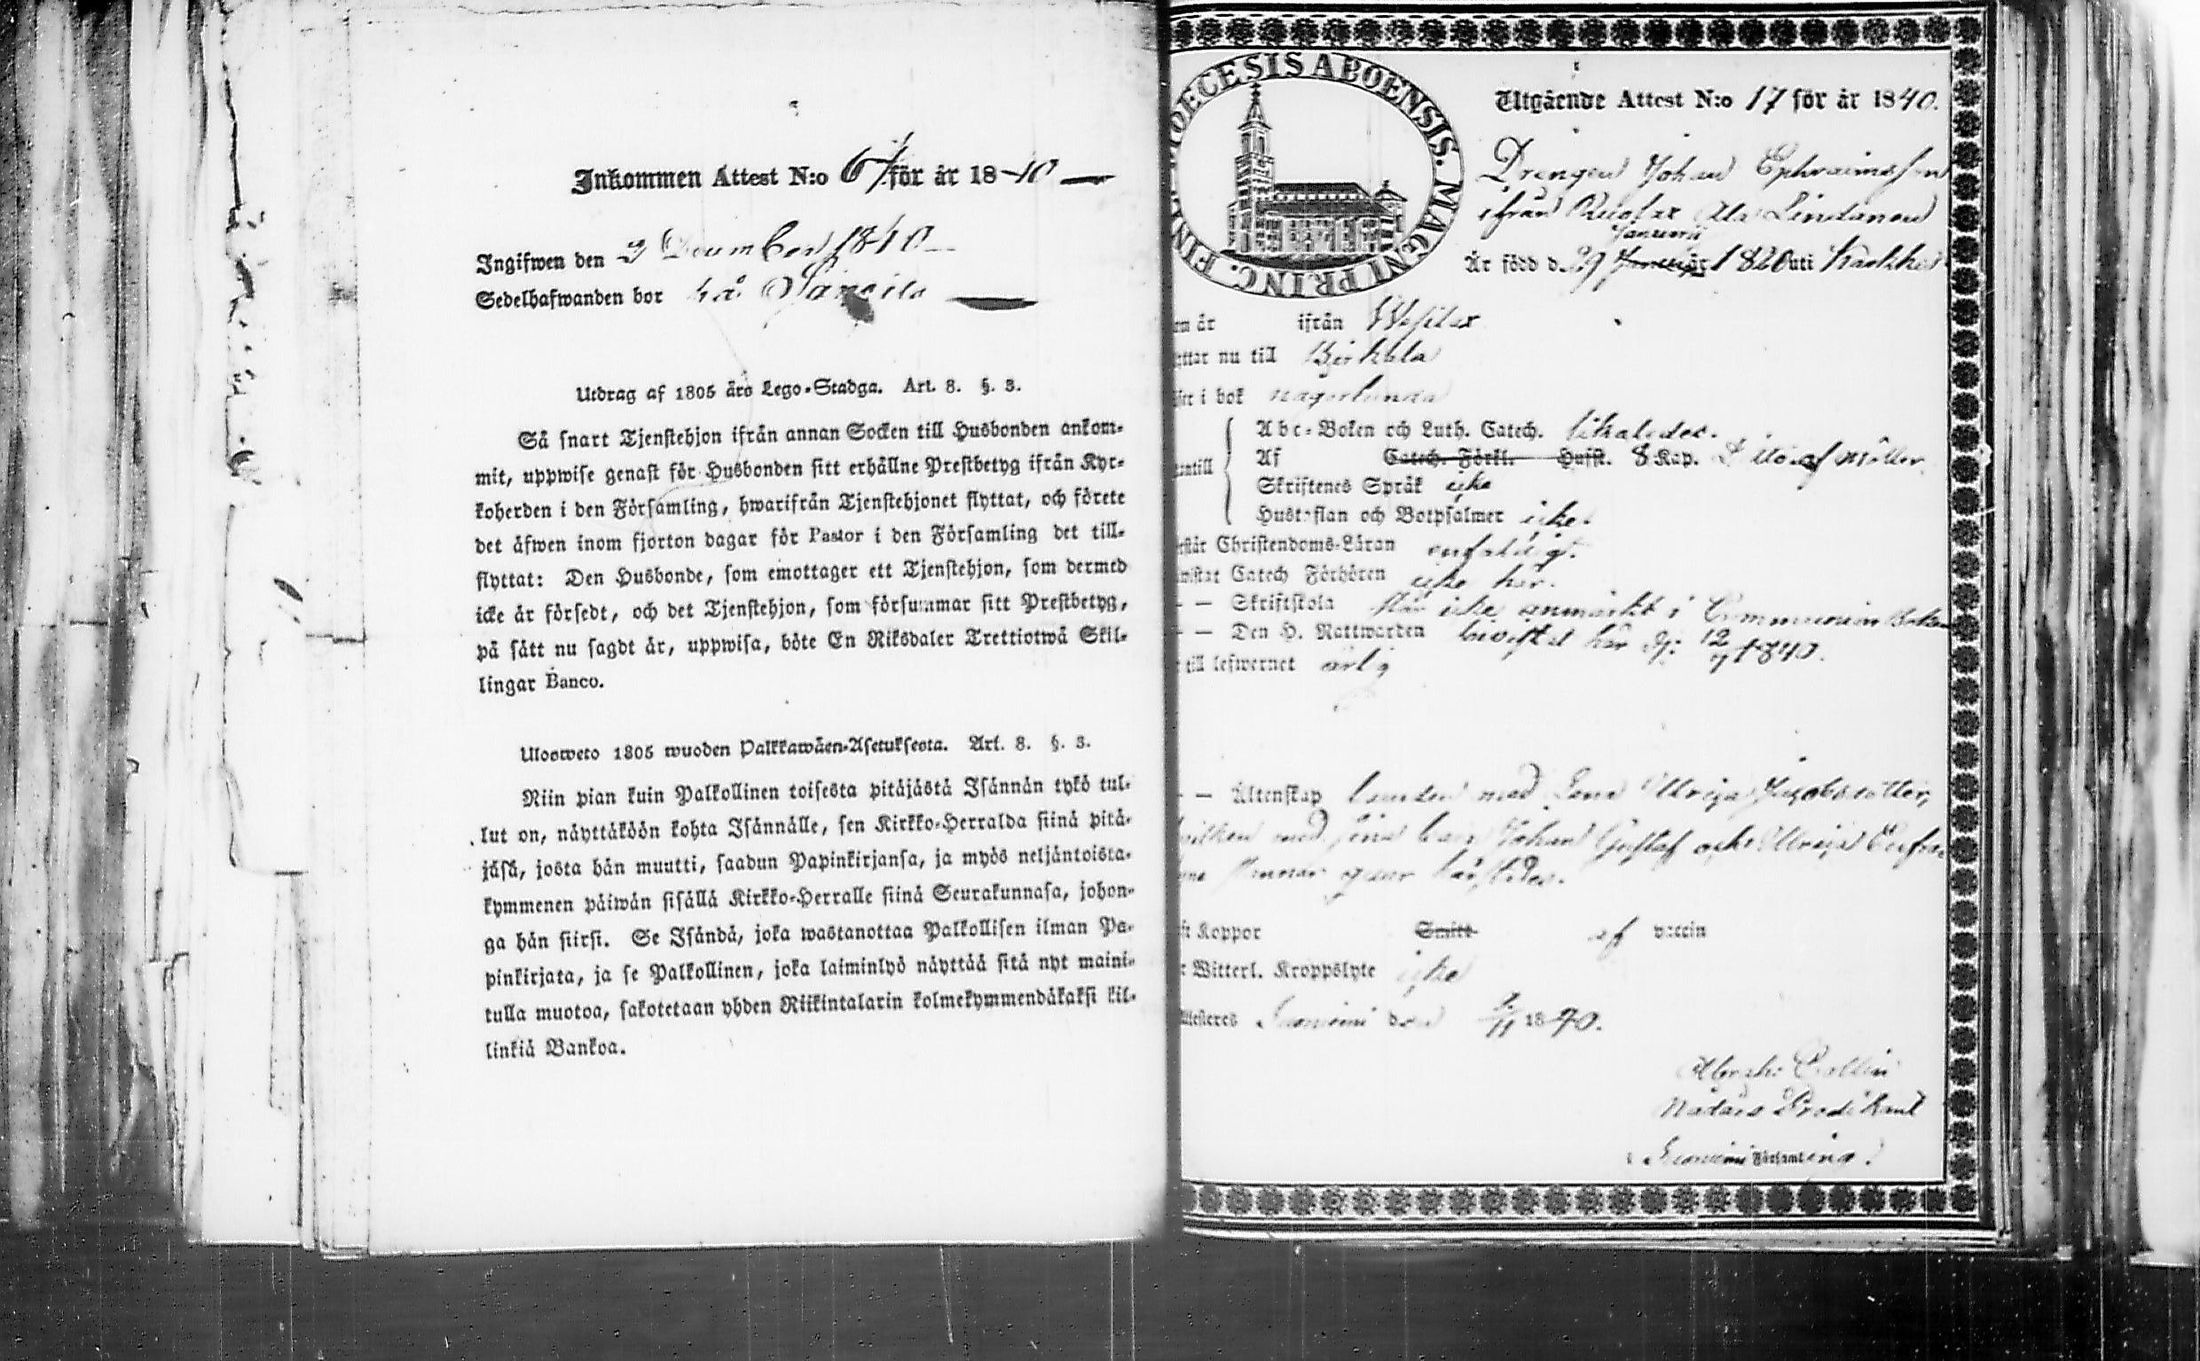 Inkommen Attest N:o för år 1840
Ingifwen den 3 December 1840
Sedelhafwanden bor på
Utdrag af 1805 års Lego-Stadga. Art. 8. §. 3.
Så snart Tjenstehjon ifrån annan Socken till Husbonden ankom-
mit, uppwise genast för Husbonden sitt erhållne Prestbetyg ifrån Kyr-
koherden i den Församling, hwarifrån Tjenstehjonet flyttat, och förete
det äfwen inom fjorton dagar för Pastor i den Församling det till-
flyttat: Den Husbonde, som emottager ett Tjenstehjon, som dermed
icke är försedt, och det Tjenstehjon, som försummar sitt Prestbetyg,
på sätt nu sagdt är, uppwisa, böte En Riksdaler Trettiotwå Skil-
lingar Banco.
Ulosweto 1805 wuoden Palkkawäen-Asetuksesta. Art. 8. §. 3.
Niin pian kuin Palkollinen toisesta pitäjästä Isännän tykö tul-
lut on, näyttäköön kohta Isännälle, sen Kirkko-Herralda siinä pitä-
jäsä, josta hän muutti, saadun Papinkirjansa, ja myös neljäntoista-
kymmenen päiwän sisällä Kirkko-Herralle siinä Seurakunnasa, johon-
ga hän siirsi. Se Isändä, joka wastanottaa Palkollisen ilman Pa-
pinkirjata, ja se Palkollinen, joka laiminlyö näyttää sitä nyt maini-
tulla muotoa, sakotetaan yhden Riikintalarin kolmekymmendäkaksi kil-
linkiä Bankoa.
DIOECESIS ABOENSIS. MAGNI PRINC. FIN
Utgående Attest N:o 17 för år 1840.
Drengen Johan Ephraimsson
ifrån Ala Lindanen
Januarii
Är född d. 29 1820 uti Karkku
om år ifrån Wesilax
ttar nu till Birkkala
äser i bok någorlunda
Abc-Boken och Luth. Catech. likaledes.
antill Af Catech. Förkl. Hufst. 8 Kap. Ditto af Möller.
Skriftenes Språk icke
Hustaflan och Botpsalmer icke.
rstår Christendoms-Läran enfaldigt.
wistat Catech Förhören icke här.
— — Skriftskola står icke anmärkt i Communion Boken
— — Den H. Nattwarden bevistat här d. 12/7 1840.
till lefwernet ärlig
— — Ältenskap med Lena Ulrica Jacobsdotter,
hwilken med sina barn Johan Gustaf och Ulrica
t Koppor Smitt af vaccin
r Witterl. Kroppslyte icke
Attesteres Suoniemi den 1840.
Nådårs Predikant
i Suoniemi Församling.